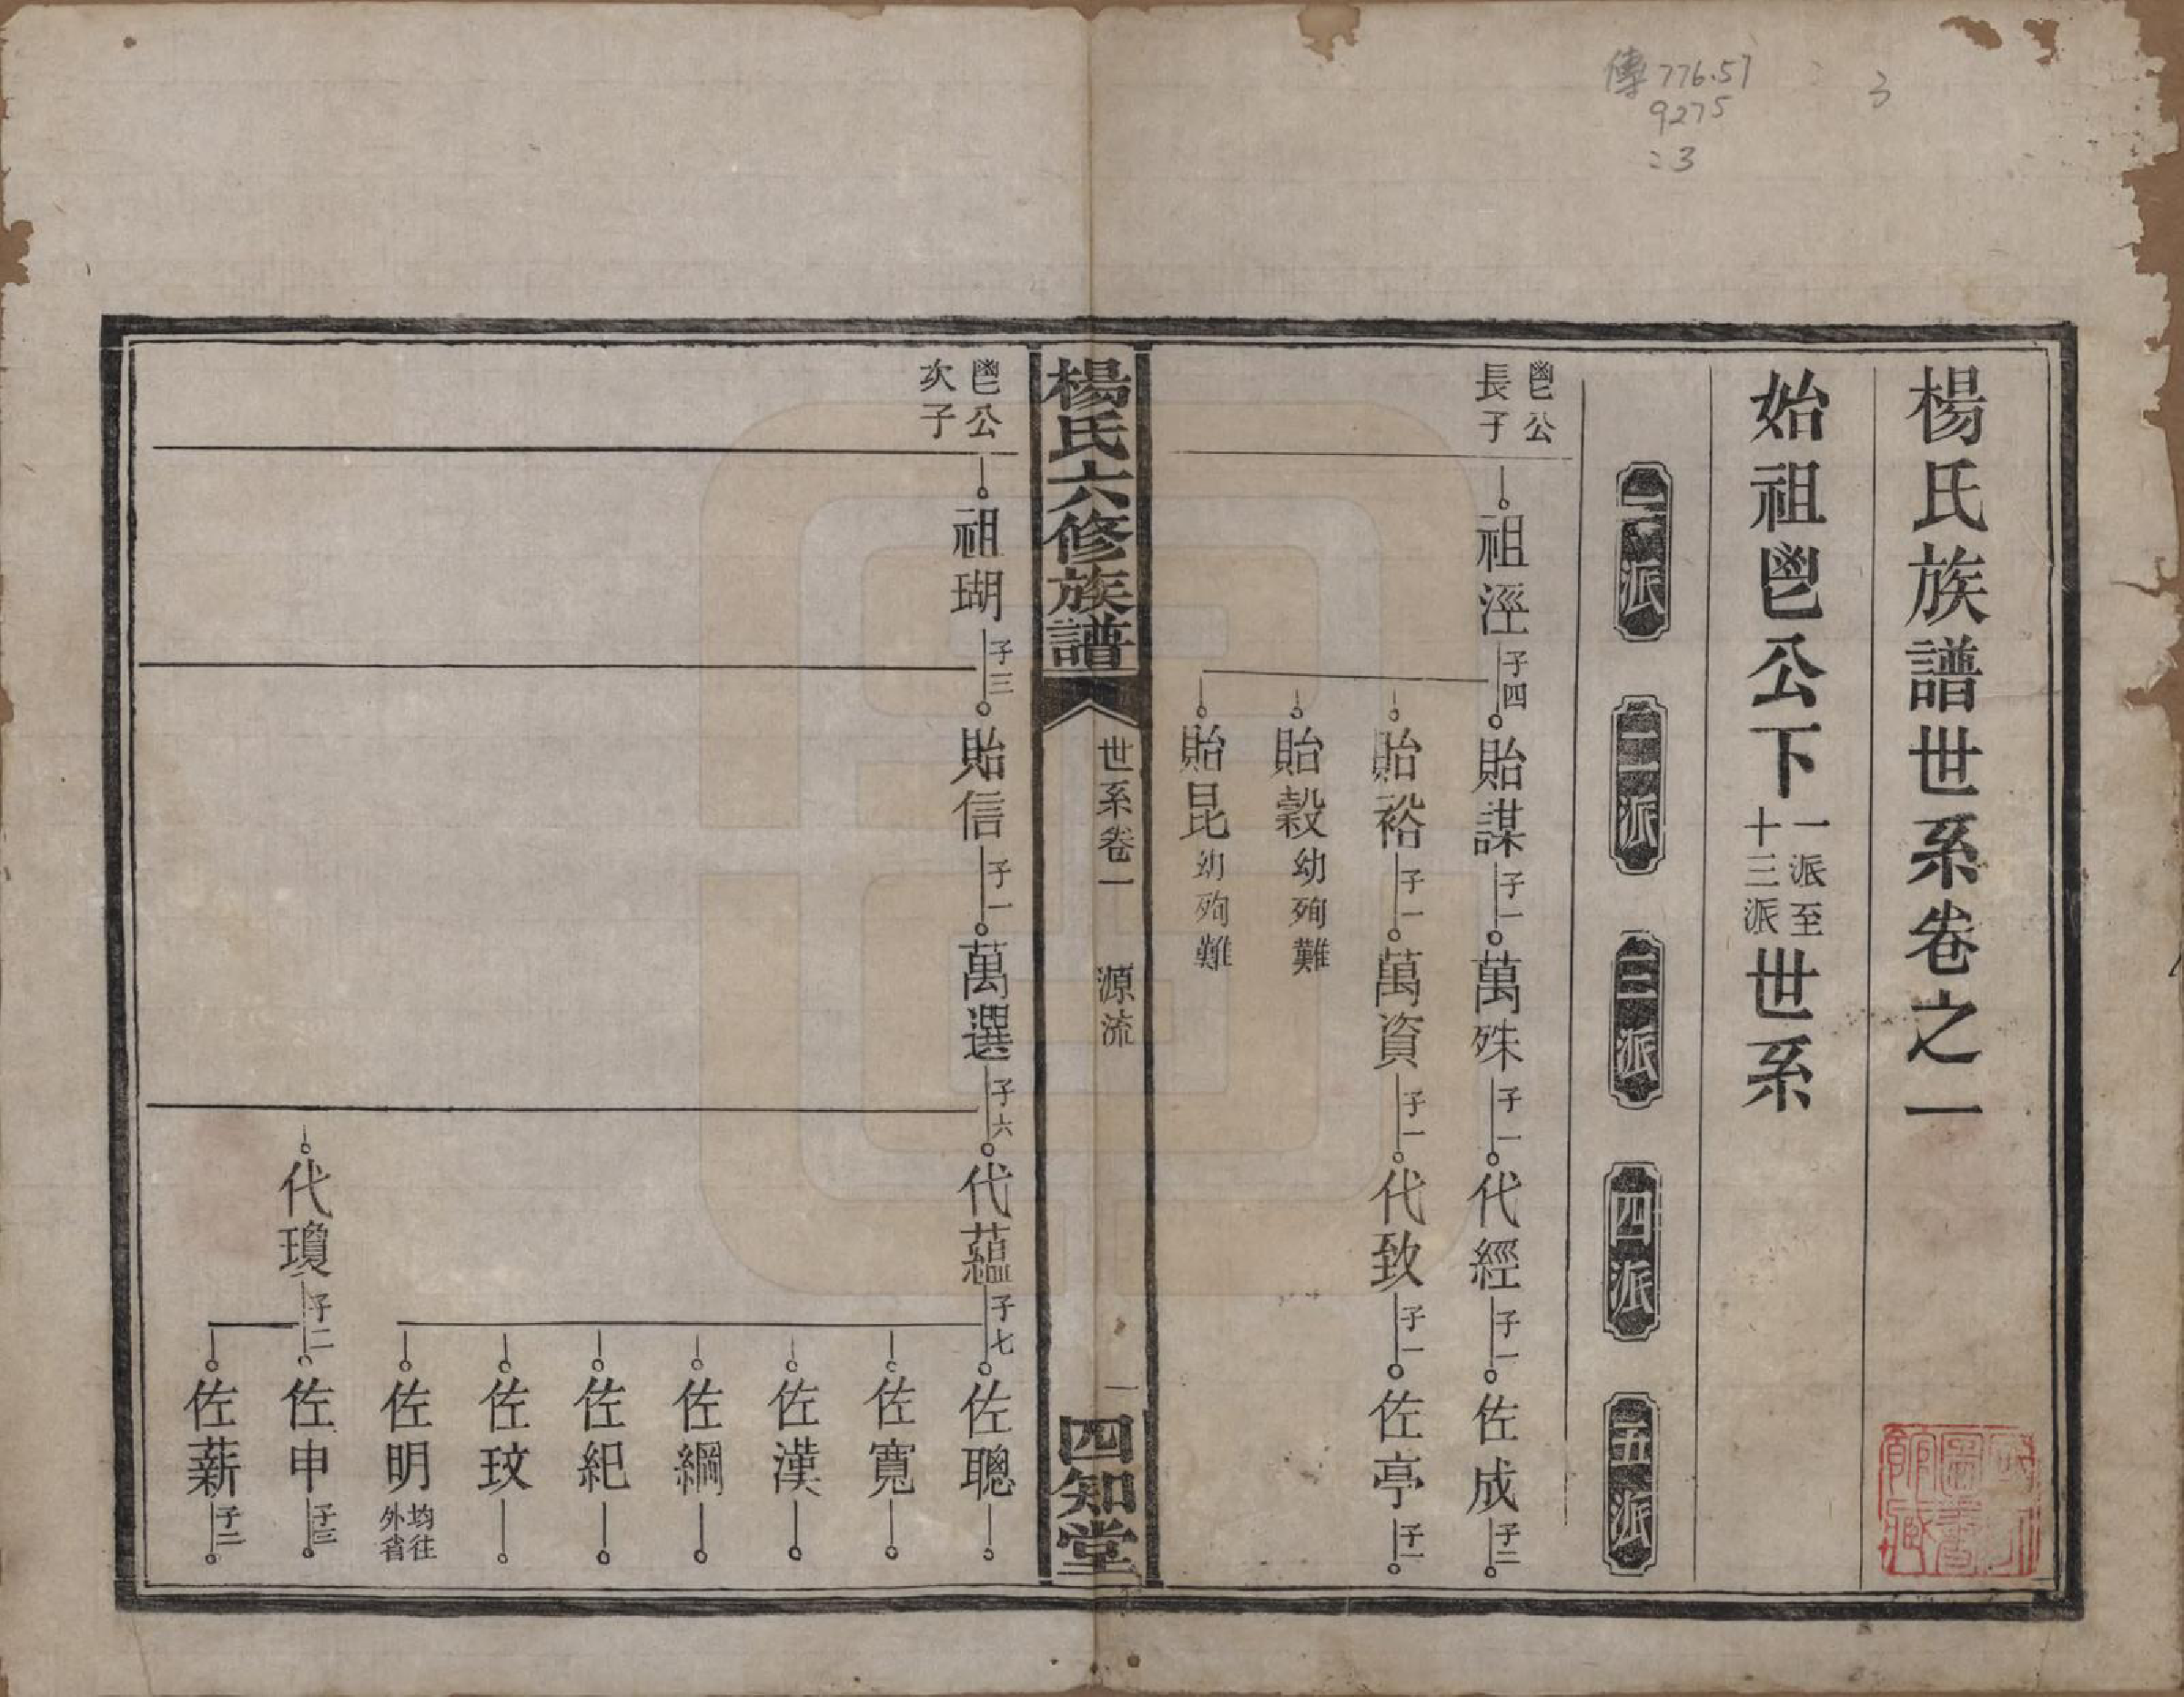 傳 776.57
9275
:3
3
楊氏族譜世系卷之一
始祖鬯公下一派至十三派世系
一派 二派 三派 四派 五派
鬯公長子
祖溼子四 貽謀子一 萬殊子一 代經子一 佐成子二
貽裕子一 萬資子一 代致子一 佐亭子一
貽穀幼殉難
貽昆幼殉難
楊氏六修族譜 世系卷一 源流 一 四知堂
鬯公次子
祖瑚子三 貽信子一 萬選子六 代蘊子七 佐聰
佐寬
佐漢
佐綱
佐紀
佐玟
佐明均往外省
代瓊子二 佐申子三
佐薪子二